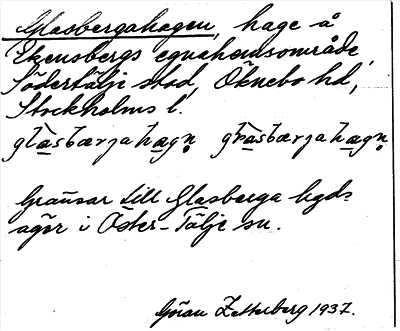 Glasbergahagen, hage å
Ekensbergs egnahemsområde,
Södertälje stad, Öknebo hd,
Stockholms l.
glàsbærjahagn̥ gràsbærjahagn̥
Gränsar till Glasberga lgds
ägor i Öster-Tälje sn.
Göran Zetterberg 1937.